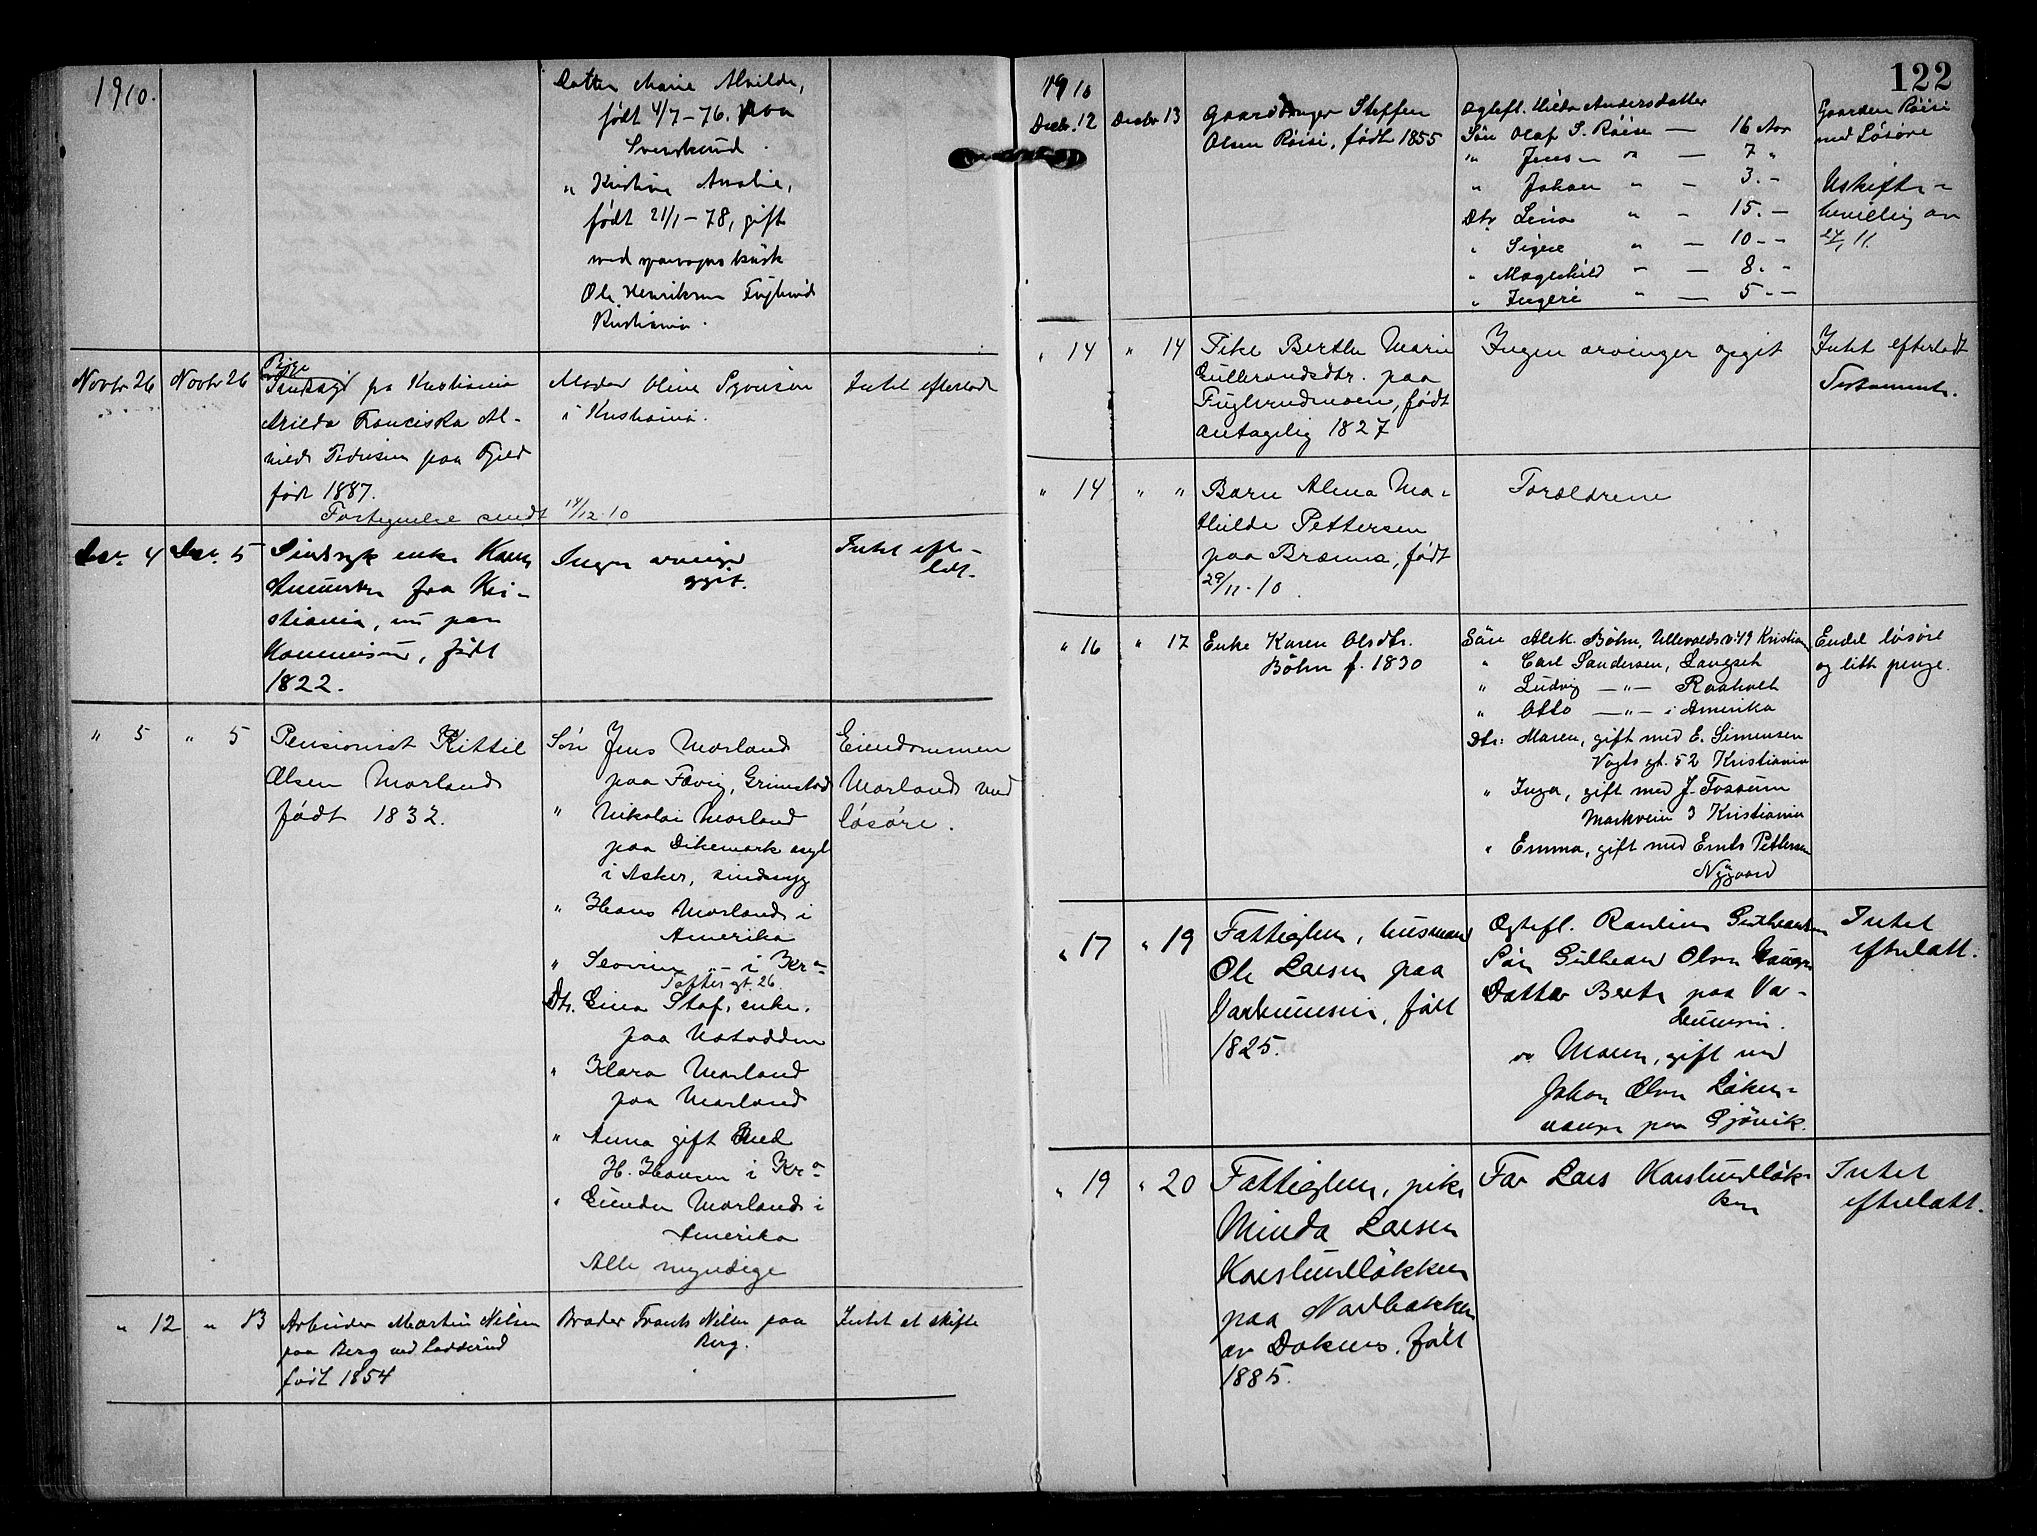 1910.
Datter Marie Alvilde,
født 4/7-76. paa
Svensrud.
" Kristine Amalie,
født 21/1-78, gift
med
Ole Henriksen Fuglerud
Kristiania.
Novbr 26 Novbr 26 Pige
Sindssyg fra Kristiania
Arilda Franciska Al-
vilde Pedersen paa Fjeld
født 1887.
Fortegnelse sendt 14/12-10
Moder Oline Syversen
i Kristiania.
Intet efterladt
Dec. 4 Dec. 5 Sindssyk enke Karen
fra Kri-
stiania, nu paa
født
1822.
Ingen arvinger
opgit.
Intet efter-
ladt.
" 5 " 5 Pensionist Kittil
Olsen Morland
født 1832.
Søn Jens Morland
paa Fævig, Grimstad
" Nikolai Morland
paa Dikemark asyl
i Asker, sindssyg
" Hans Morland i
Amerika
" Severin -"- i Kr.a
Toftes gt. 26.
Dtr. Gina Staf, enke.
paa Notodden
" Klara Morland
paa Morland
" Anna gift med
H. Hansen i Kr.a
" Gunda Morland i
Amerika
Alle myndige
Eiendommen
Morland med
løsøre.
" 12 " 13 Arbeider Martin Nilsen
paa Berg ved Ladderud
født 1854
Broder Frants Nilsen paa
Berg.
Intet at skifte
122
1910
Decbr. 12 Decbr 13 Gaardbruger Steffen
Olsen Røisi, født 1855
Ogtefl. Hilda Andersdatter
Søn Olaf S. Røise — 16 Aar
" Jens " — 7 "
" Johan " — 3. -
Dtr Lina " - 15. -
" Signe " — 10 - -
" Magnhild " — 8. -
" Ingeri " — 5 - -
Gaarden Røisi
med Løsøre
Uskifte-
bevilling av
27/11.
" 14 " 14 Pike Berthe Marie
Gulbrandsdtr. paa
Fuglerudmoen, født
antagelig 1827
Ingen arvinger opgit
Intet efterladt
Testament.
" 14 " " Barn Alma Ma-
thilde Pettersen
paa Brænna, født
29/11-10.
Forældrene
" 16 " 17 Enke Karen Olsdtr.
Bøhn f. 1830
Søn Alek. Bøhn, Ullevoldsv. 49 Kristiania
" Carl Sandersen, Langset
" Ludvig —"— Raaholt
" Otto —"— i Amerika
Dtr: Maren, gift med E. Simensen
Vogts gt. 52 Kristiania
" Inga, gift med J. Fossum
Markvein 3 Kristiania
" Emma, gift med Ernts Pettersen
Nygaard
Endel løsøre
og litt penge.
" 17 " 19 Fattiglem, husmand
Ole Larsen paa
født
1825.
Ogtefl.
Søn Gulbrand Olsen
Datter Berte paa Va-
" Maren, gift med
Johan Olsen Løken-
paa Gjøvik.
Intet
efterlatt.
" 19 " 20 Fattiglem, pike
Minda Larsen
Karlsrudløkken
paa Nordbakken
av Dokens, født
1885.
Far Lars Karlsrudløk-
ken
Intet
efterlatt.